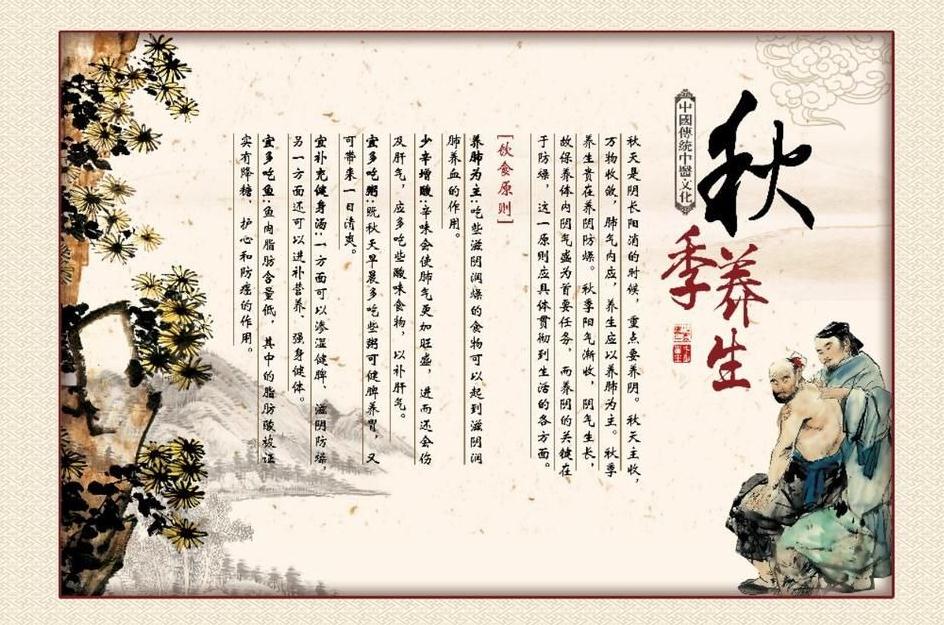 中國傳統中醫文化
秋
季养
生
秋天是阴长阳消的时候，重点要养阴。秋天主收，
万物收敛，肺气内应，养生应以养肺为主。秋季
养生贵在养阴防燥。秋季阳气渐收，阴气生长，
故保养体内阴气盛为首要任务，而养阴的关键在
于防燥，这一原则应具体贯彻到生活的各方面。
[饮食原则]
养肺为主：吃些滋阴润燥的食物可以起到滋阴润
肺养血的作用。
少辛增酸：辛味会使肺气更加旺盛，进而还会伤
及肝气，应多吃些酸味食物，以补肝气。
宜多吃粥：既秋天早晨多吃些粥可健脾养胃，又
可带来一日清爽。
宜补充健身汤：一方面可以渗湿健脾、滋阴防燥，
另一方面还可以进补营养、强身健体。
宜多吃鱼：鱼肉脂肪含量低，其中的脂肪酸被证
实有降糖、护心和防癌的作用。